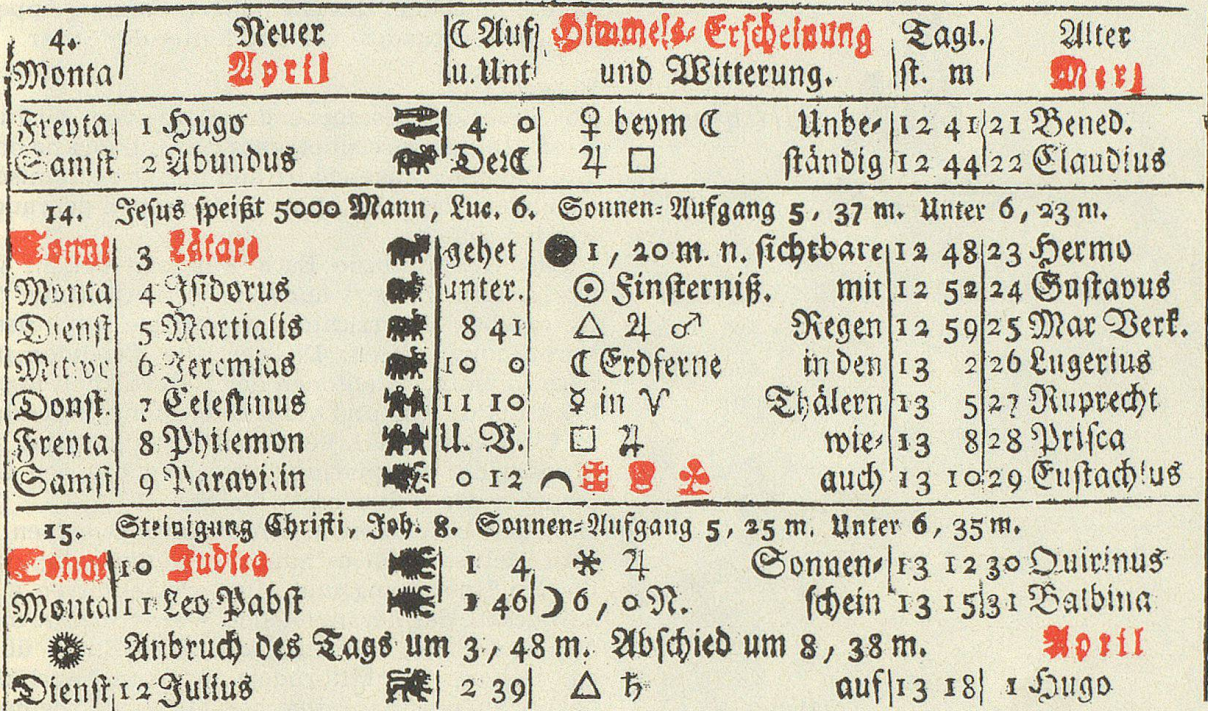 4. Neuer ☾ Auf Himmels-Erscheinung Tagl. Alter
Monta April u. Unt und Witterung. st. m Merz
Freyta 1 Hugo 4 0 ♀ beym ☾ Unbe- 12 41 21 Bened.
Samst 2 Abundus Der☾ ♃ □ ständig 12 44 22 Claudius
14. Jesus speißt 5000 Mann, Luc. 6. Sonnen-Aufgang 5, 37 m. Unter 6, 23 m.
Sonnt 3 Lätare gehet ● 1, 20 m. n. sichtbare 12 48 23 Hermo
Monta 4 Isidorus unter. ☉ Finsterniß. mit 12 52 24 Gustavus
Dienst 5 Martialis 8 41 △ ♃ ♂ Regen 12 59 25 Mar Verk.
Mitwo 6 Jeremias 10 0 ☾ Erdferne in den 13 2 26 Lugerius
Donst. 7 Celestinus 11 10 ☿ in ♈ Thälern 13 5 27 Ruprecht
Freyta 8 Philemon U. V. □ ♃ wie- 13 8 28 Prisca
Samst 9 Paravizin 0 12 auch 13 10 29 Eustachius
15. Steinigung Christi, Joh. 8. Sonnen-Aufgang 5, 25 m. Unter 6, 35 m.
Sonnt 10 Judica 1 4 ⚹ ♃ Sonnen- 13 12 30 Quirinus
Monta 11 Leo Pabst 1 46 ☽ 6, 0 N. schein 13 15 31 Balbina
Anbruch des Tags um 3, 48 m. Abschied um 8, 38 m. April
Dienst 12 Julius 2 39 △ ♄ auf 13 18 1 Hugo